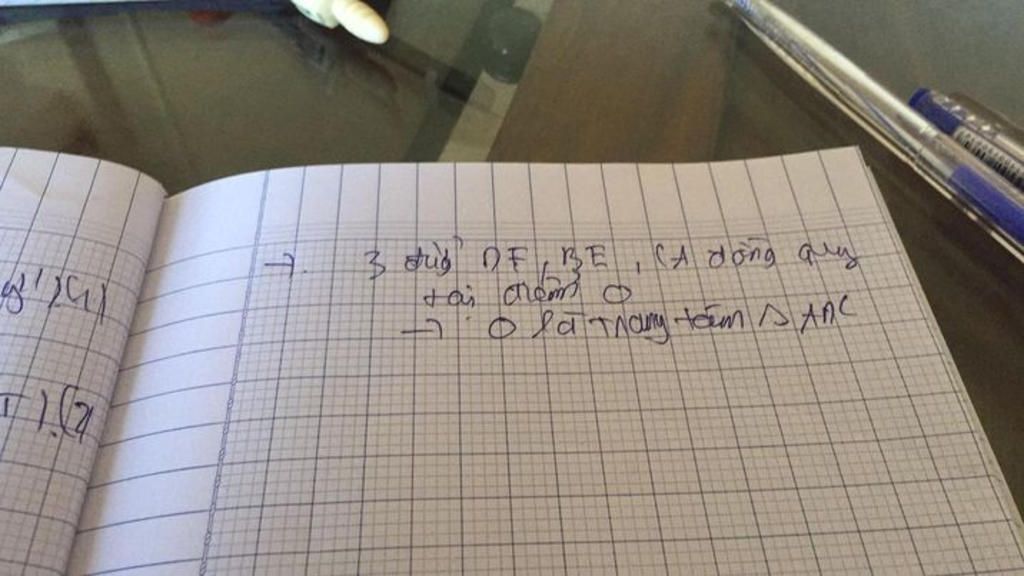 →. 3 đg̀ DF, BE, CA đồng quy
tại điểm O
→ O là trọng tâm △ ABC
)(1)
).(2)